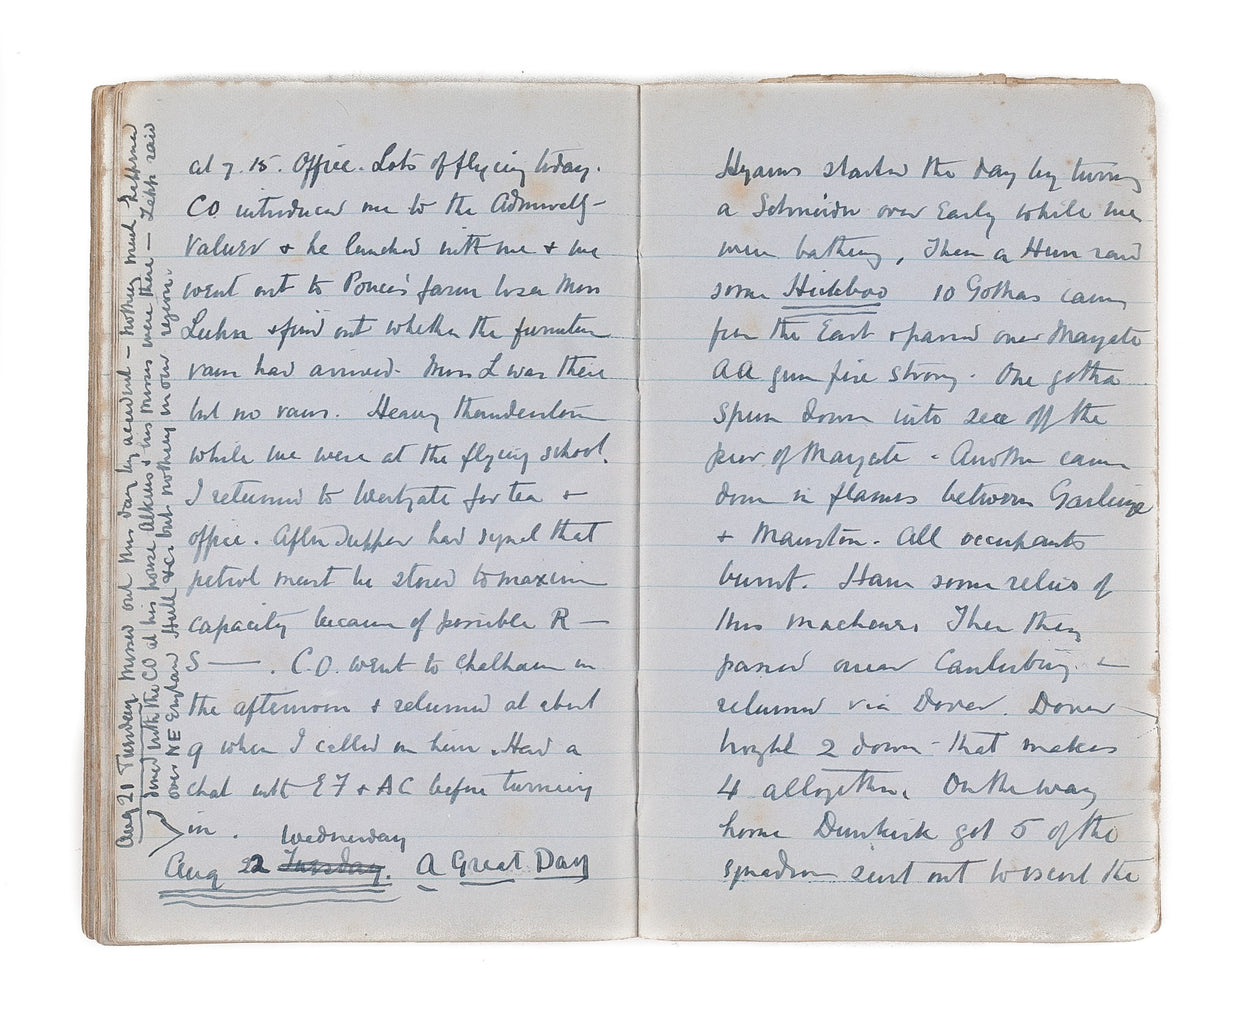 Aug 21 Tuesday Missed out this day by accident – nothing much happened
dined with the CO at his house Atkins & his missus were there – Zepp raid
over NE England Hull &c but nothing in our region
at 7.15. Office. Lots of flying today.
CO introduced me to the Admiralty
Valuer & he lunched with me & we
went out to Ponce's farm to see Miss
& find out whether the furniture
vans had arrived. Miss L was there
but no vans. Heavy thunderstorm
while we were at the flying school.
I returned to Westgate for tea &
office. After supper had signal that
petrol must be stored to maximum
capacity because of possible R —
S — . C.O. went to Chatham in
the afternoon & returned at about
9 when I called on him. Had a
chat with EF & AC before turning
in.
Wednesday
Aug 22 Tuesday. A Great Day
Hyams started the day by turning
a Schneider over Early while we
were bathing, Then a Hun raid
some Hickboo 10 Gothas came
from the East & passed over Margate
AA gun fire strong. One gotha
spun down into sea off the
pier of Margate - Another came
down in flames between Garlinge
& Manston. All occupants
burnt. Have some relics of
this machine. Then they
passed over Canterbury &
returned via Dover. Dover
brought 2 down - that makes
4 altogether. On the way
home Dunkirk got 5 of the
squadron sent out to escort the